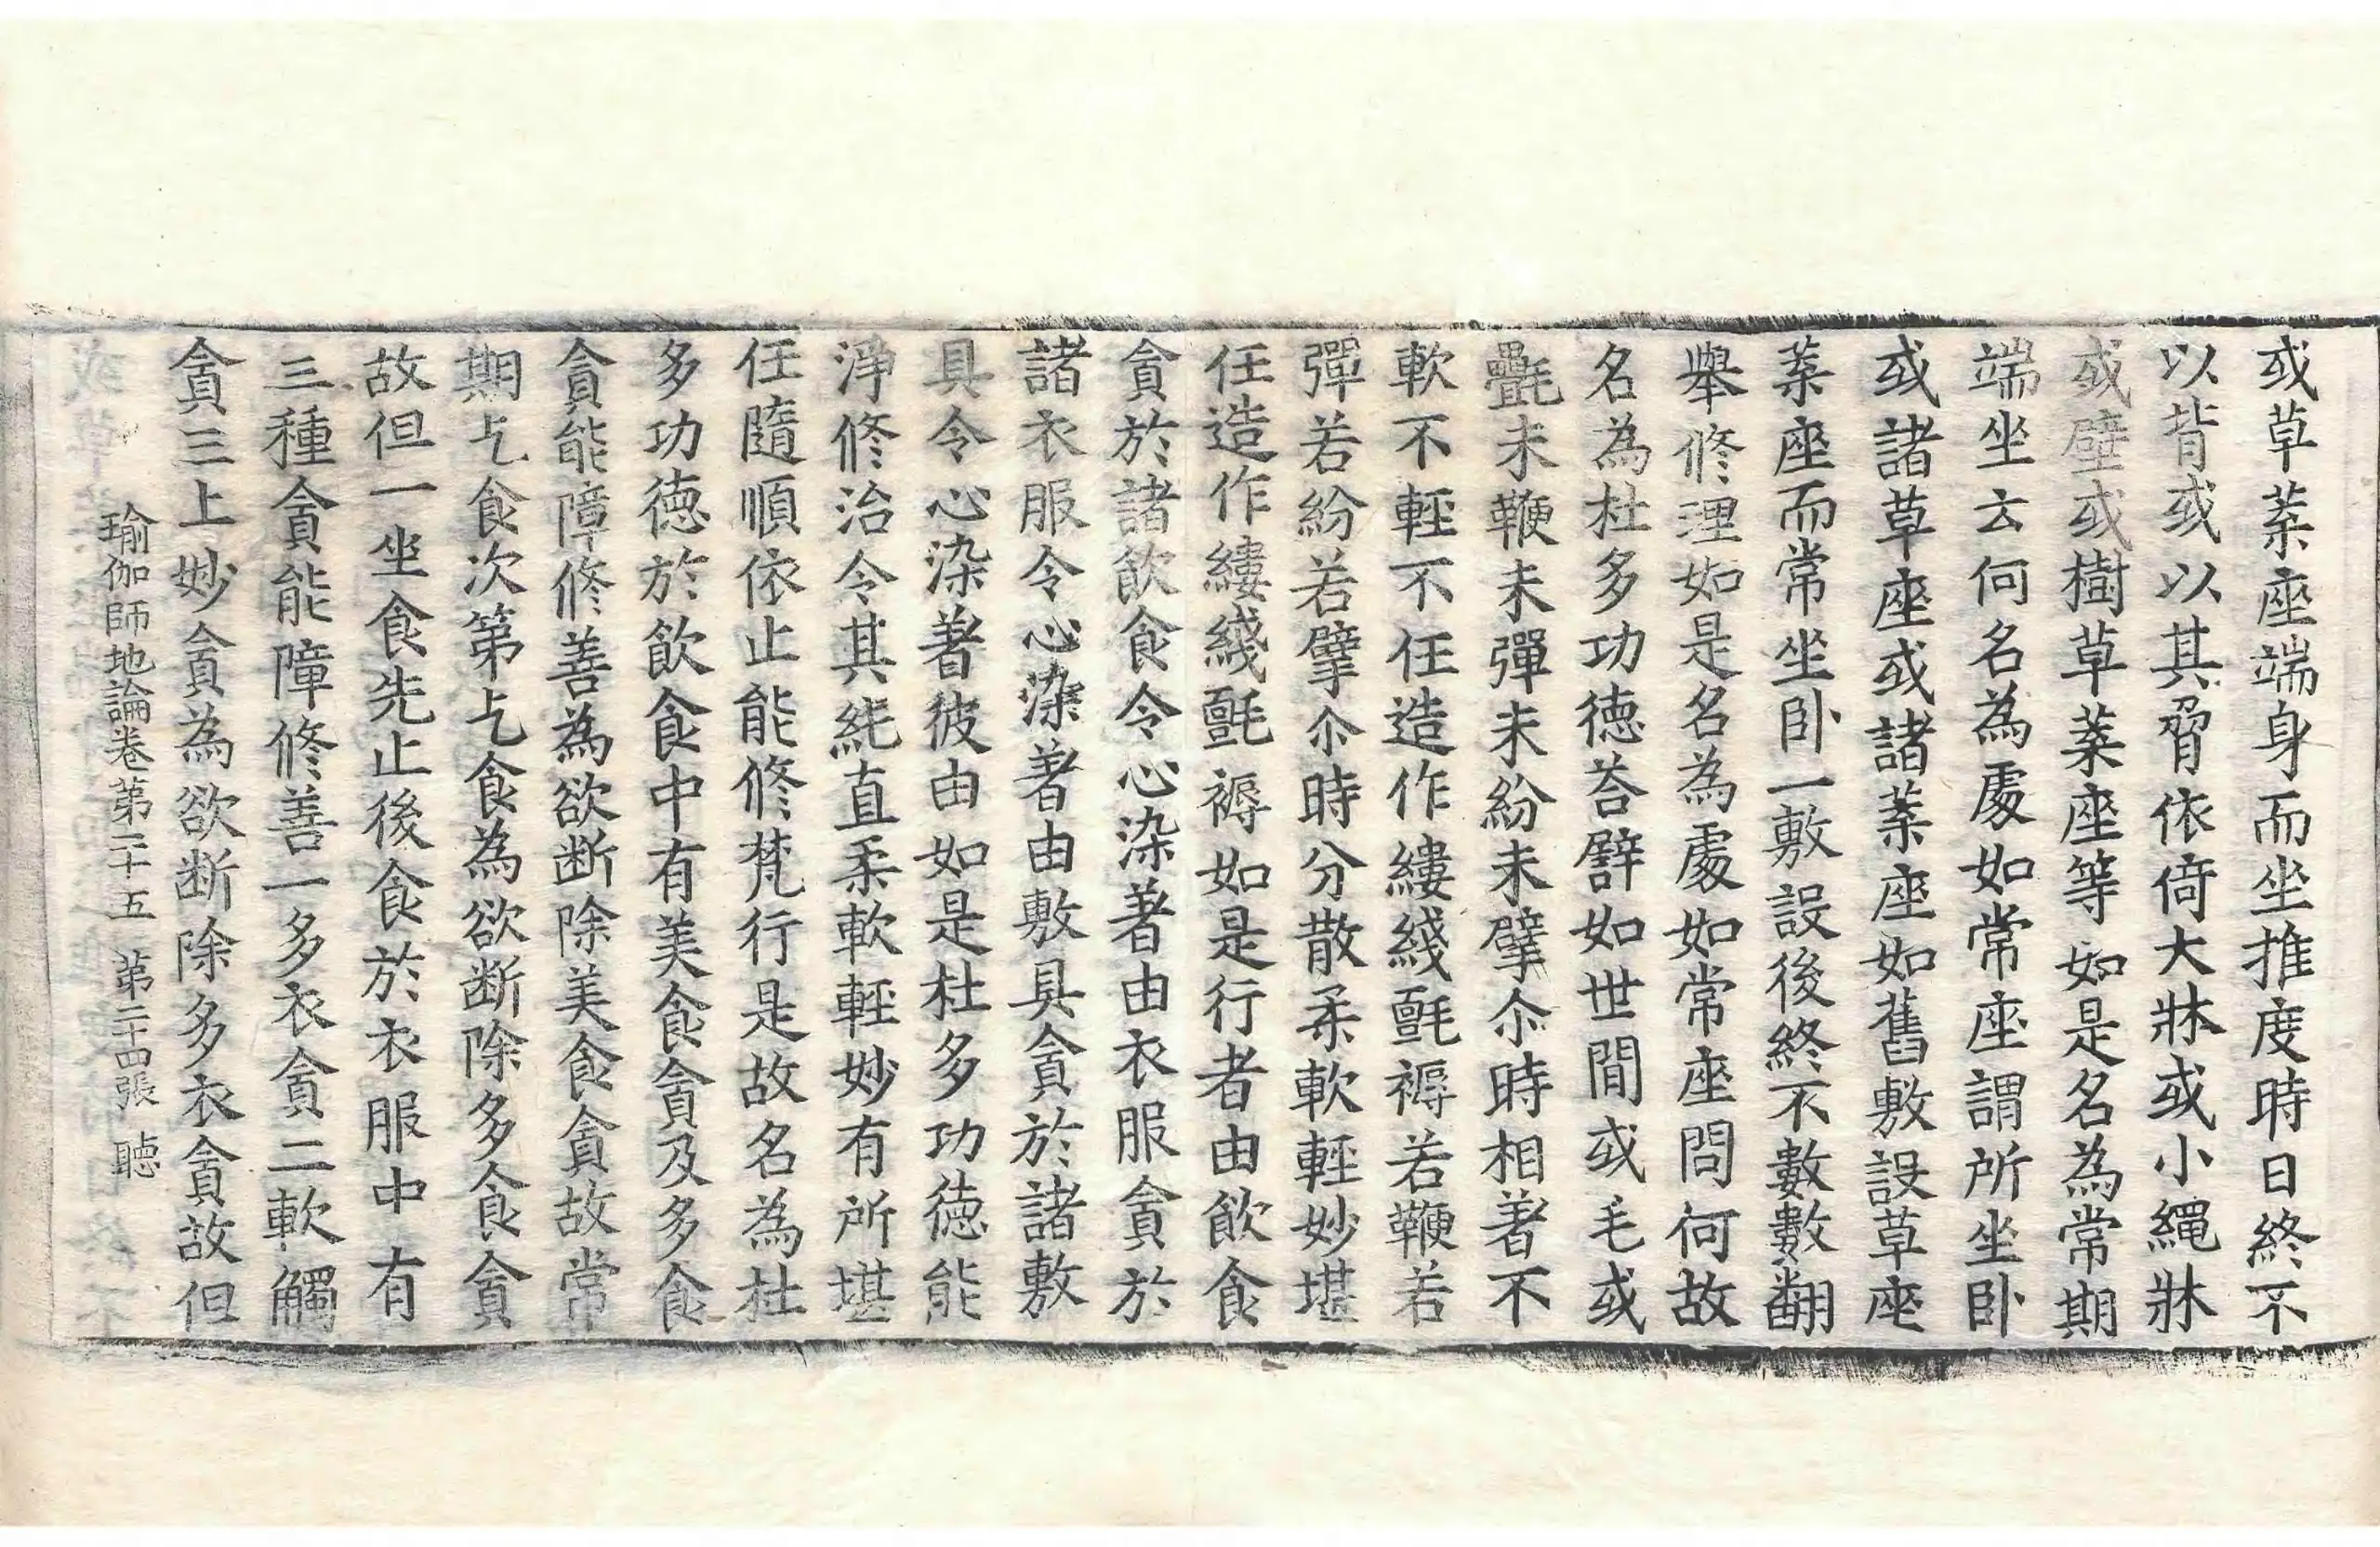 或草葉座端身而坐推度時日終不
以背或以其脅依倚大牀或小繩牀
或壁或樹草葉座等如是名為常期
端坐云何名為處如常座謂所坐卧
或諸草座或諸葉座如舊敷設草座
葉座而常坐卧一敷設後終不數數翻
舉修理如是名為處如常座問何故
名為杜多功徳荅譬如世閒或毛或
㲲未鞭未彈未紛未擘尒時相著不
軟不輕不任造作縷綫氈褥若鞭若
彈若紛若擘尒時分散柔軟輕妙堪
任造作縷綫氈褥如是行者由飲食
貪於諸飲食令心染著由衣服貪於
諸衣服令心染著由敷具貪於諸敷
具令心染著彼由如是杜多功徳能
淨修治令其純直柔軟輕妙有所堪
任隨順依止能修梵行是故名為杜
多功徳於飲食中有美食貪及多食
貪能障修善為欲断除美食貪故常
期乞食次第乞食為欲断除多食貪
故但一坐食先止後食於衣服中有
三種貪能障修善一多衣貪二軟觸
貪三上妙貪為欲断除多衣貪故但
瑜伽師地論卷第二十五 第二十四張 聽